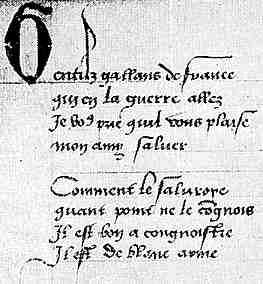 Gentilz gallans de france
qui en la guerre allez
Je vos prie quil vous plaise
mon amy saluer
Comment le saluroye
quant point ne le congnois
Il est bon a congnoistre
Il est de blanc arme